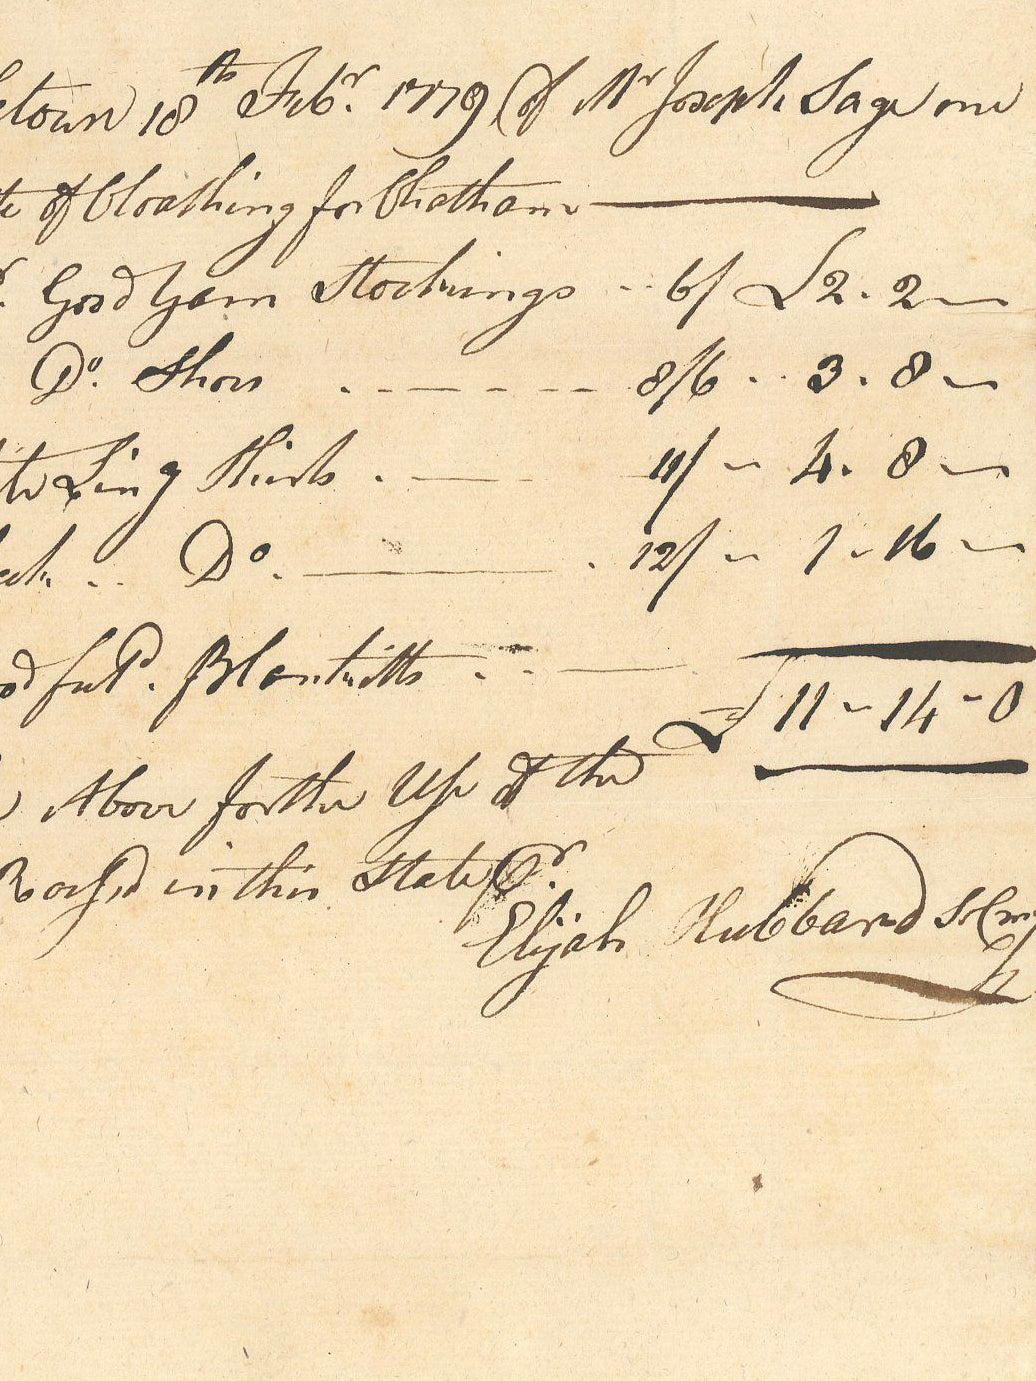 etown 18th Febr. 1779 of Mr Joseph Sage one
te of Cloathing for Chatham
r. Good Yarn Stockings 6/ £2. 2
Do. Shoes 8/6 3. 8
te Ling Shirts 11/ 4. 8
eck Do. 12/ 1 16
od fuld. Blankitts
£11 - 14 - 0
Above for the Use of the
Raised in this State Pr.
Elijah Hubbard